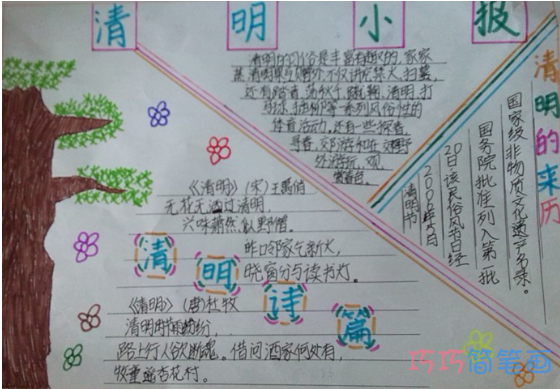 清 明 小 报
清明的习俗是丰富有趣的,家家
蒸清明果互赠外,不仅讲究禁火、扫墓,
还有踏青、荡秋千、蹴鞠、清明、打
马球、插柳等一系列风俗性的
体育活动,还有一些探春、
寻春、郊游和在郊野
外游玩、观
清明的来历
国家级非物质文化遗产名录。
国务院批准列入第一批
20日该民俗节日经
2006年5月
清明节
《清明》(宋)王禹偁
无花无酒过清明,
兴味萧然似野僧。
昨日邻家乞新火,
晓窗分与读书灯。
清 明 诗 篇
《清明》(唐)杜牧
清明时节雨纷纷,
路上行人欲断魂。借问酒家何处有,
牧童遥杏花村。
巧巧简笔画